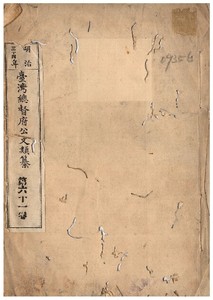 明治
三十四年
臺灣總督府公文類纂
第六十一卷